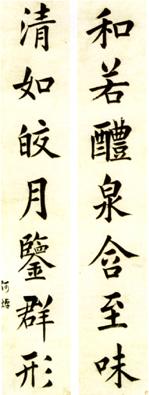 和若醴泉含至味
清如皎月鑒群形
何焯